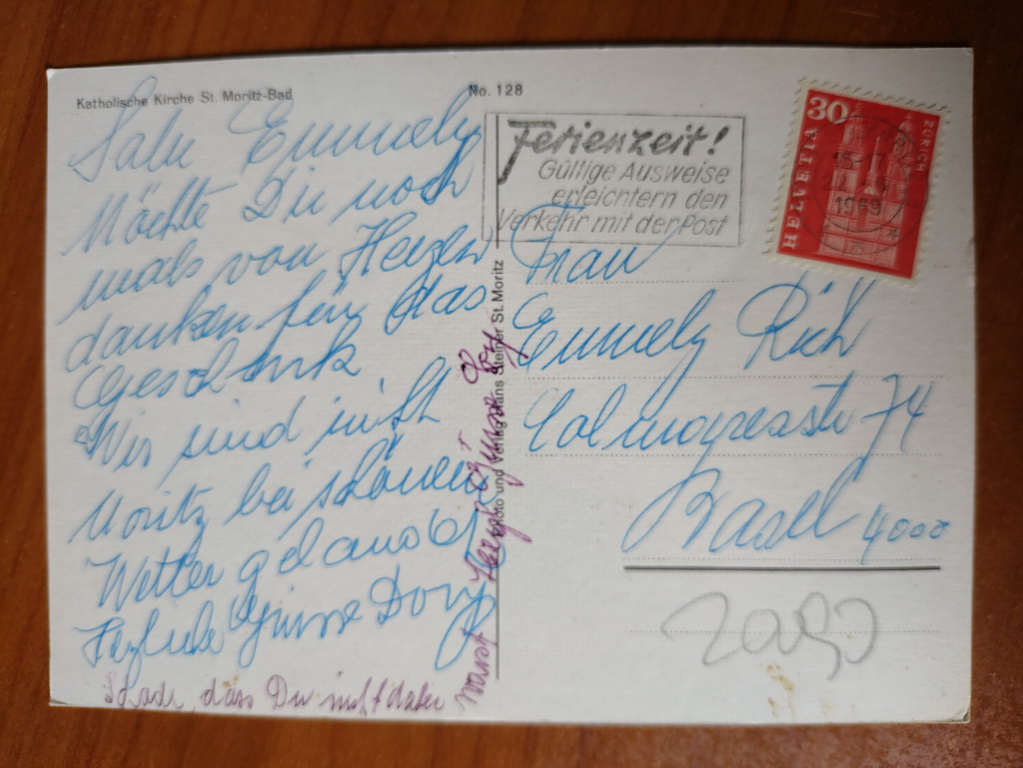 Katholische Kirche St. Moritz-Bad
No. 128
Emmely
Möchte Dir noch
mals von Herzen
danken für das
Geschenk
Wir sind in St
Moritz bei schönem
Wetter gelandet
Herzliche Grüsse Dory
Schade, dass Du nicht dabei
warst Herzl. Grüsse
Foto und Verlag Hans Steiner St. Moritz
Ferienzeit!
Gültige Ausweise
erleichtern den
Verkehr mit der Post
30
HELVETIA
ZÜRICH
1969
Frau
Emmely Rich
Colmarerstr 74
Basel 4000